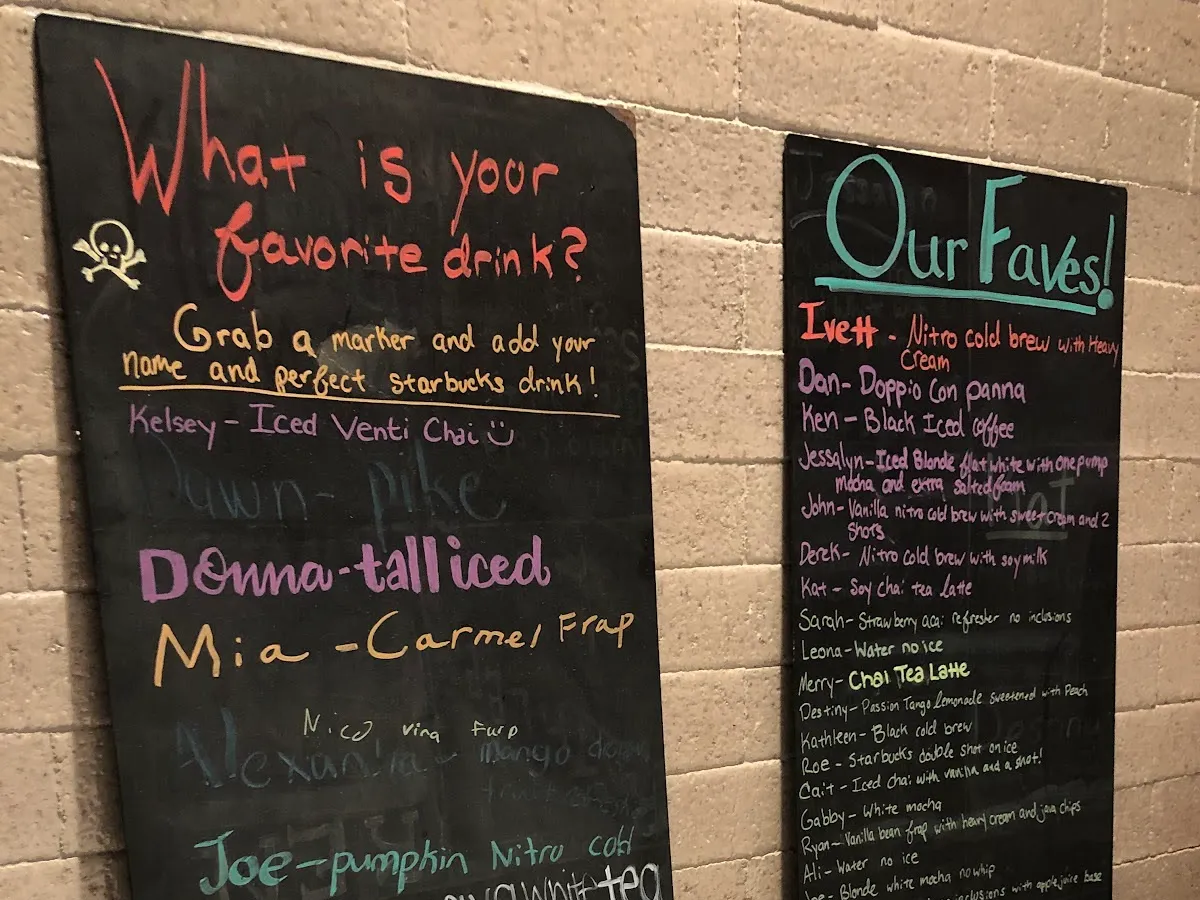 What is your
favorite drink?
Grab a marker and add your
name and perfect starbucks drink!
Kelsey - Iced Venti Chai
Dawn - pike
Donna - tall iced
Mia - Carmel Frap
Nico vina Furp
Alexandria - mango
Joe - pumpkin Nitro cold
white tea
Our Faves!
Ivett - Nitro cold brew with Heavy
Cream
Dan - Doppio Con panna
Ken - Black Iced coffee
Jessalyn - Iced Blonde flat white with one pump
mocha and extra salted foam
John - Vanilla nitro cold brew with sweet cream and 2
shots
Derek - Nitro cold brew with soy milk
Kat - Soy chai tea latte
Sarah - Strawberry acai refresher no inclusions
Leona - Water no ice
Merry - Chai Tea Latte
Destiny - Passion Tango lemonade sweetened with Peach
Kathleen - Black cold brew
Roe - Starbucks double shot on ice
Cait - Iced chai with vanilla and a shot!
Gabby - White mocha
Ryan - Vanilla bean frap with heavy cream and java chips
Ali - Water no ice
Joe - Blonde white mocha no whip
inclusions with apple juice base